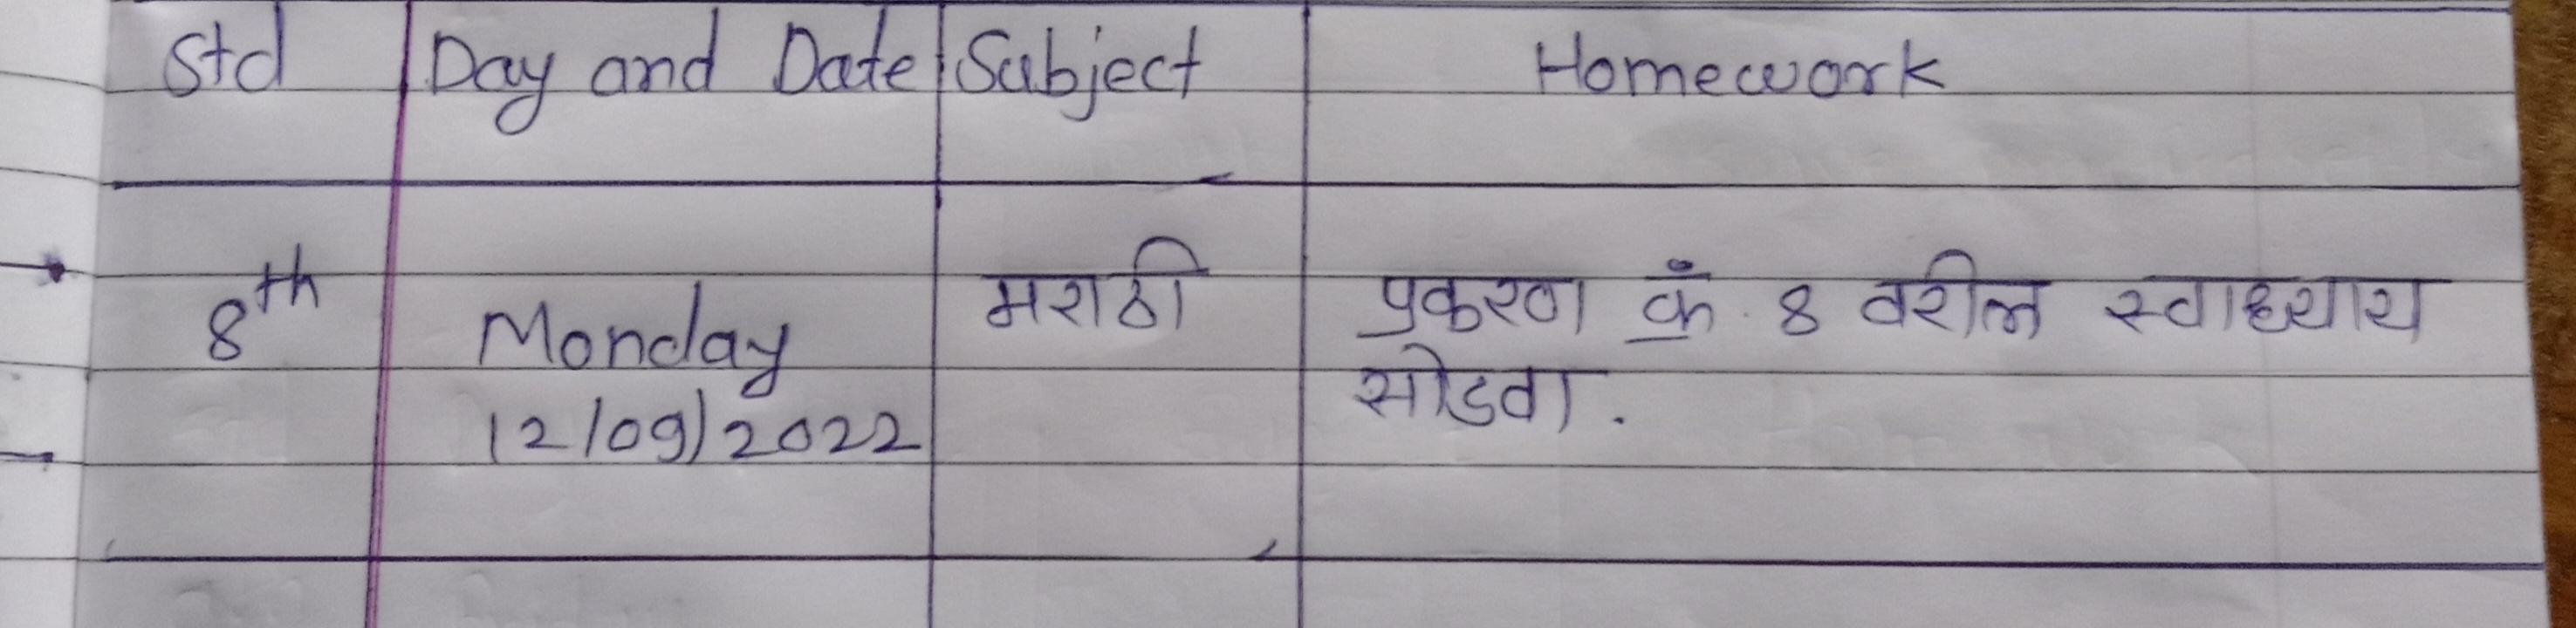 Std Day and Date Subject Homework
8th Monday मराठी प्रकरण क्रं. 8 वरील स्वाध्याय
12/09/2022 सोडवा.